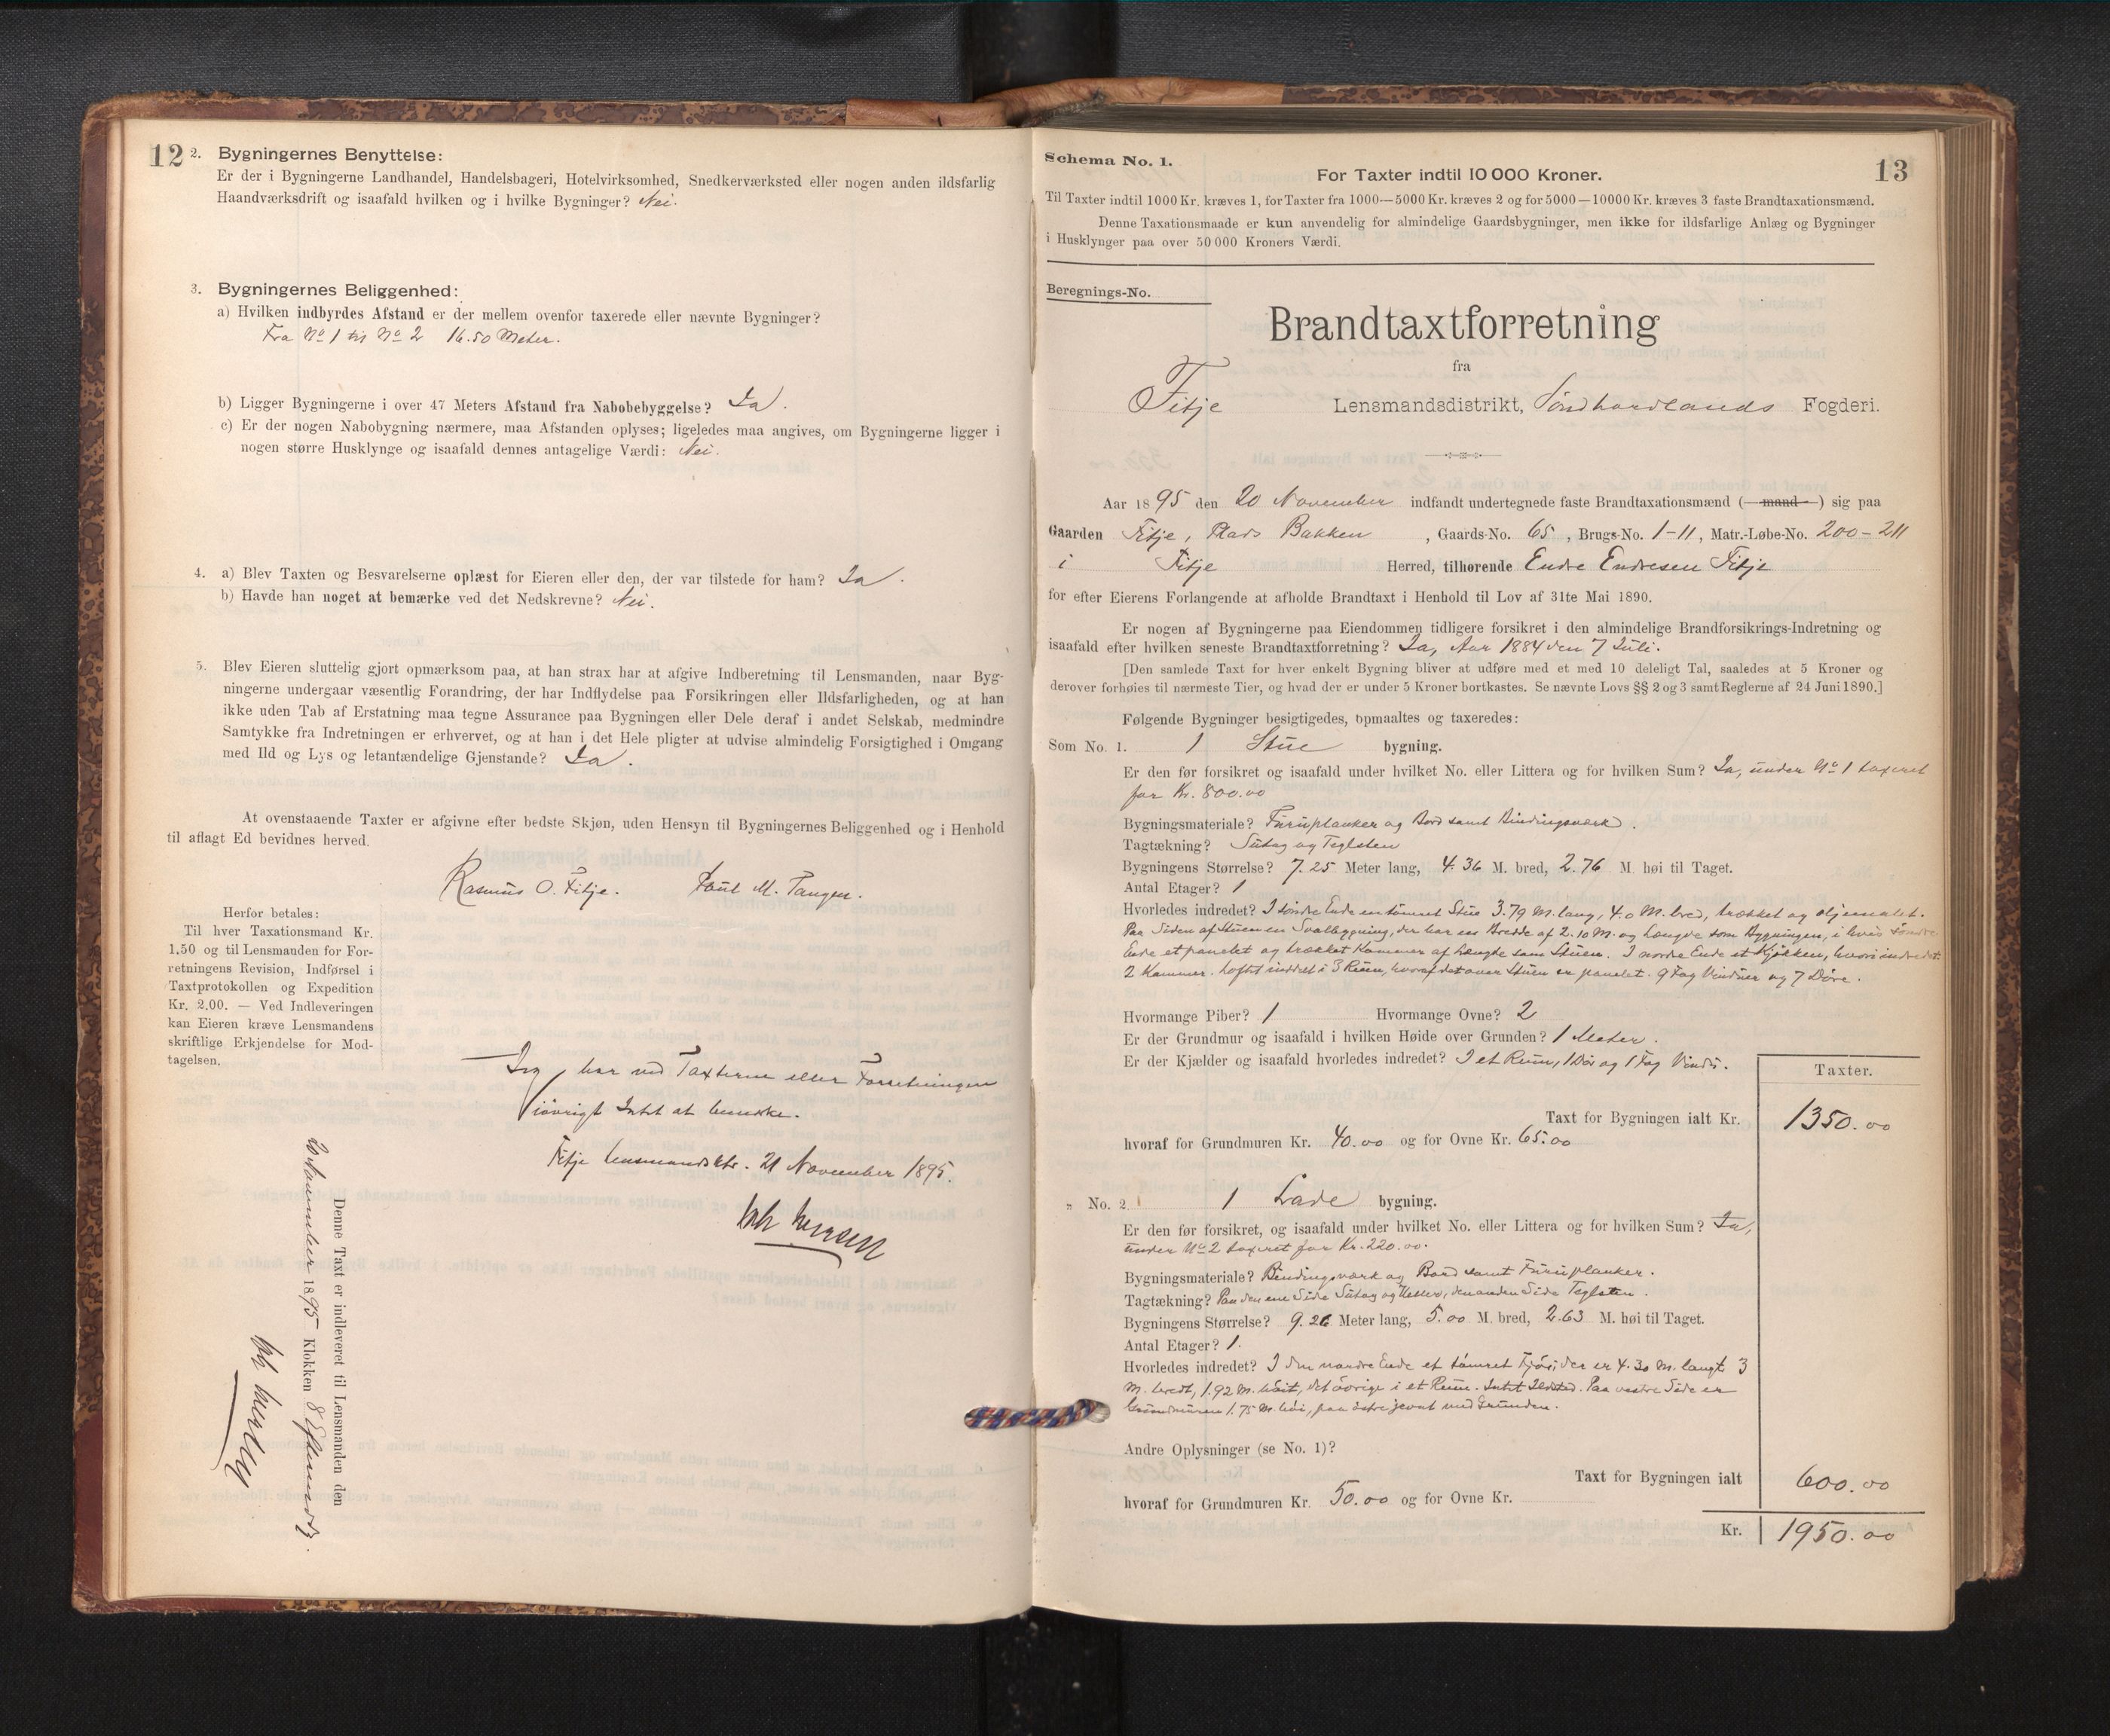 12
2. Bygningernes Benyttelse:
Er der i Bygningerne Landhandel, Handelsbageri, Hotelvirksomhed, Snedkerværksted eller nogen anden ildsfarlig
Haandværksdrift og isaafald hvilken og i hvilke Bygninger? Nei.
3. Bygningernes Beliggenhed:
a) Hvilken indbyrdes Afstand er der mellem ovenfor taxerede eller nævnte Bygninger?
Fra No 1 til No 2 16.50 Meter.
b) Ligger Bygningerne i over 47 Meters Afstand fra Nabobebyggelse? Ja.
c) Er der nogen Nabobygning nærmere, maa Afstanden oplyses; ligeledes maa angives, om Bygningerne ligger i
nogen større Husklynge og isaafald dennes antagelige Værdi: Nei.
4. a) Blev Taxten og Besvarelserne oplæst for Eieren eller den, der var tilstede for ham? Ja.
b) Havde han noget at bemærke ved det Nedskrevne? Nei.
5. Blev Eieren sluttelig gjort opmærksom paa, at han strax har at afgive Indberetning til Lensmanden, naar Byg-
ningerne undergaar væsentlig Forandring, der har Indflydelse paa Forsikringen eller Ildsfarligheden, og at han
ikke uden Tab af Erstatning maa tegne Assurance paa Bygningen eller Dele deraf i andet Selskab, medmindre
Samtykke fra Indretningen er erhvervet, og at han i det Hele pligter at udvise almindelig Forsigtighed i Omgang
med Ild og Lys og letantændelige Gjenstande? Ja.
At ovenstaaende Taxter er afgivne efter bedste Skjøn, uden Hensyn til Bygningernes Beliggenhed og i Henhold
til aflagt Ed bevidnes herved.
Rasmus O. Fitje. Poul M. Tangen.
Herfor betales:
Til hver Taxationsmand Kr.
1,50 og til Lensmanden for For-
retningens Revision, Indførsel i
Taxtprotokollen og Expedition
Kr. 2.00. — Ved Indleveringen
kan Eieren kræve Lensmandens
skriftlige Erkjendelse for Mod-
tagelsen.
Jeg har ved Taxterne eller Forretningen
iøvrigt Intet at bemærke.
Fitje Lensmandsktr. 21 November 1895.
Denne Taxt er indleveret til Lensmanden den
November 1895 Klokken 8 Eftermidg.
Schema No. 1.
For Taxter indtil 10 000 Kroner.
13
Til Taxter indtil 1000 Kr. kræves 1, for Taxter fra 1000—5000 Kr. kræves 2 og for 5000—10000 Kr. kræves 3 faste Brandtaxationsmænd.
Denne Taxationsmaade er kun anvendelig for almindelige Gaardsbygninger, men ikke for ildsfarlige Anlæg og Bygninger
i Husklynger paa over 50 000 Kroners Værdi.
Beregnings-No.
Brandtaxtforretning
fra
Fitje Lensmandsdistrikt, Søndhordlands Fogderi.
Aar 1895 den 20 November indfandt undertegnede faste Brandtaxationsmænd (mand) sig paa
Gaarden Fitje, Plads Bakken, Gaards-No. 65, Brugs-No. 1-11, Matr.-Løbe-No. 200-211
i Fitje Herred, tilhørende Endre Endresen Fitje
for efter Eierens Forlangende at afholde Brandtaxt i Henhold til Lov af 31te Mai 1890.
Er nogen af Bygningerne paa Eiendommen tidligere forsikret i den almindelige Brandforsikrings-Indretning og
isaafald efter hvilken seneste Brandtaxtforretning? Ja, Aar 1884 den 7 Juli.
[Den samlede Taxt for hver enkelt Bygning bliver at udføre med et med 10 deleligt Tal, saaledes at 5 Kroner og
derover forhøies til nærmeste Tier, og hvad der er under 5 Kroner bortkastes. Se nævnte Lovs §§ 2 og 3 samt Reglerne af 24 Juni 1890.]
Følgende Bygninger besigtigedes, opmaaltes og taxeredes:
Som No. 1. 1 Stue bygning.
Er den før forsikret og isaafald under hvilket No. eller Littera og for hvilken Sum? Ja, under No 1 taxeret
for Kr. 800.00
Bygningsmateriale? Furuplanker og Bord samt Bindingsværk.
Tagtækning? Sutag og Teglsten
Bygningens Størrelse? 7.25 Meter lang, 4.36 M. bred, 2.76 M. høi til Taget.
Antal Etager? 1
Hvorledes indredet? I søndre Ende en tømret Stue 3.79 M. lang, 4.0 M. bred, trækket og oljemalet.
Paa Siden af Stuen en Svalbygning, der har en Bredde af 2.10 M. og Længde som Bygningen, i hvis søndre
Ende et panelet og trækket Kammer af Længde som Stuen. I nordre Ende et Kjøkken, hvori indredet
2 Kammer. Loftet inddelt i 3 Rum, hvoraf det over Stuen er panelet. 9 Fag Vinduer og 7 Døre.
Hvormange Piber? 1 Hvormange Ovne? 2
Er der Grundmur og isaafald i hvilken Høide over Grunden? 1 Meter.
Er der Kjælder og isaafald hvorledes indredet? I et Rum, 1 Dør og 1 Fag Vindu.
Taxter.
Taxt for Bygningen ialt Kr. 1350.00
hvoraf for Grundmuren Kr. 40.00 og for Ovne Kr. 65.00
„ No. 2 1 Lade bygning.
Er den før forsikret, og isaafald under hvilket No. eller Littera og for hvilken Sum? Ja,
under No 2 taxeret for Kr. 220.00.
Bygningsmateriale? Bindingsværk og Bord samt Furuplanker.
Tagtækning? Paa den ene Side Sutag og Heller, den anden Side Teglsten.
Bygningens Størrelse? 9.26 Meter lang, 5.00 M. bred, 2.63 M. høi til Taget.
Antal Etager? 1.
Hvorledes indredet? I den nordre Ende et tømret Fjøs, der er 4.30 M. langt 3
M. bredt, 1.92 M. høit, det øvrige i et Rum. Intet Ildsted. Paa vestre Side er
Grundmuren 1.75 M. høi, paa østre jevnt med Grunden.
Andre Oplysninger (se No. 1)?
Taxt for Bygningen ialt 600.00
hvoraf for Grundmuren Kr. 50.00 og for Ovne Kr.
Kr. 1950.00